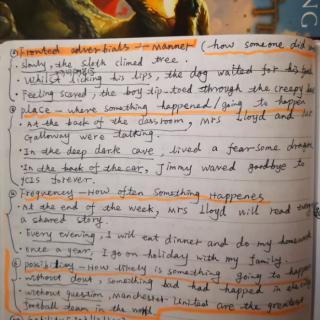 NG
Fronted adverbials - Manner (how someone did
• Slowly, the sloth climed tree.
• Whilst licking his lips, the dog waited for his
• Feeling scared, the boy tip-toed through the creepy
place - where something happened/going to happen
• At the back of the classroom, Mrs Lloyd and
Galloway were talking.
• In the deep dark cave, lived a fear-some dragon
• In the back of the car, Jimmy waved goodbye to
forever.
Frequency - How often something Happenes
• At the end of the week, Mrs Lloyd will read
a shared story.
• Every evening, I will eat dinner and do my homework
• Once a year, I go on holiday with my family.
- How likely is something going to happen
• without dout, something bad had happend in the
• without question, Manchester United are the greatest
football team in the